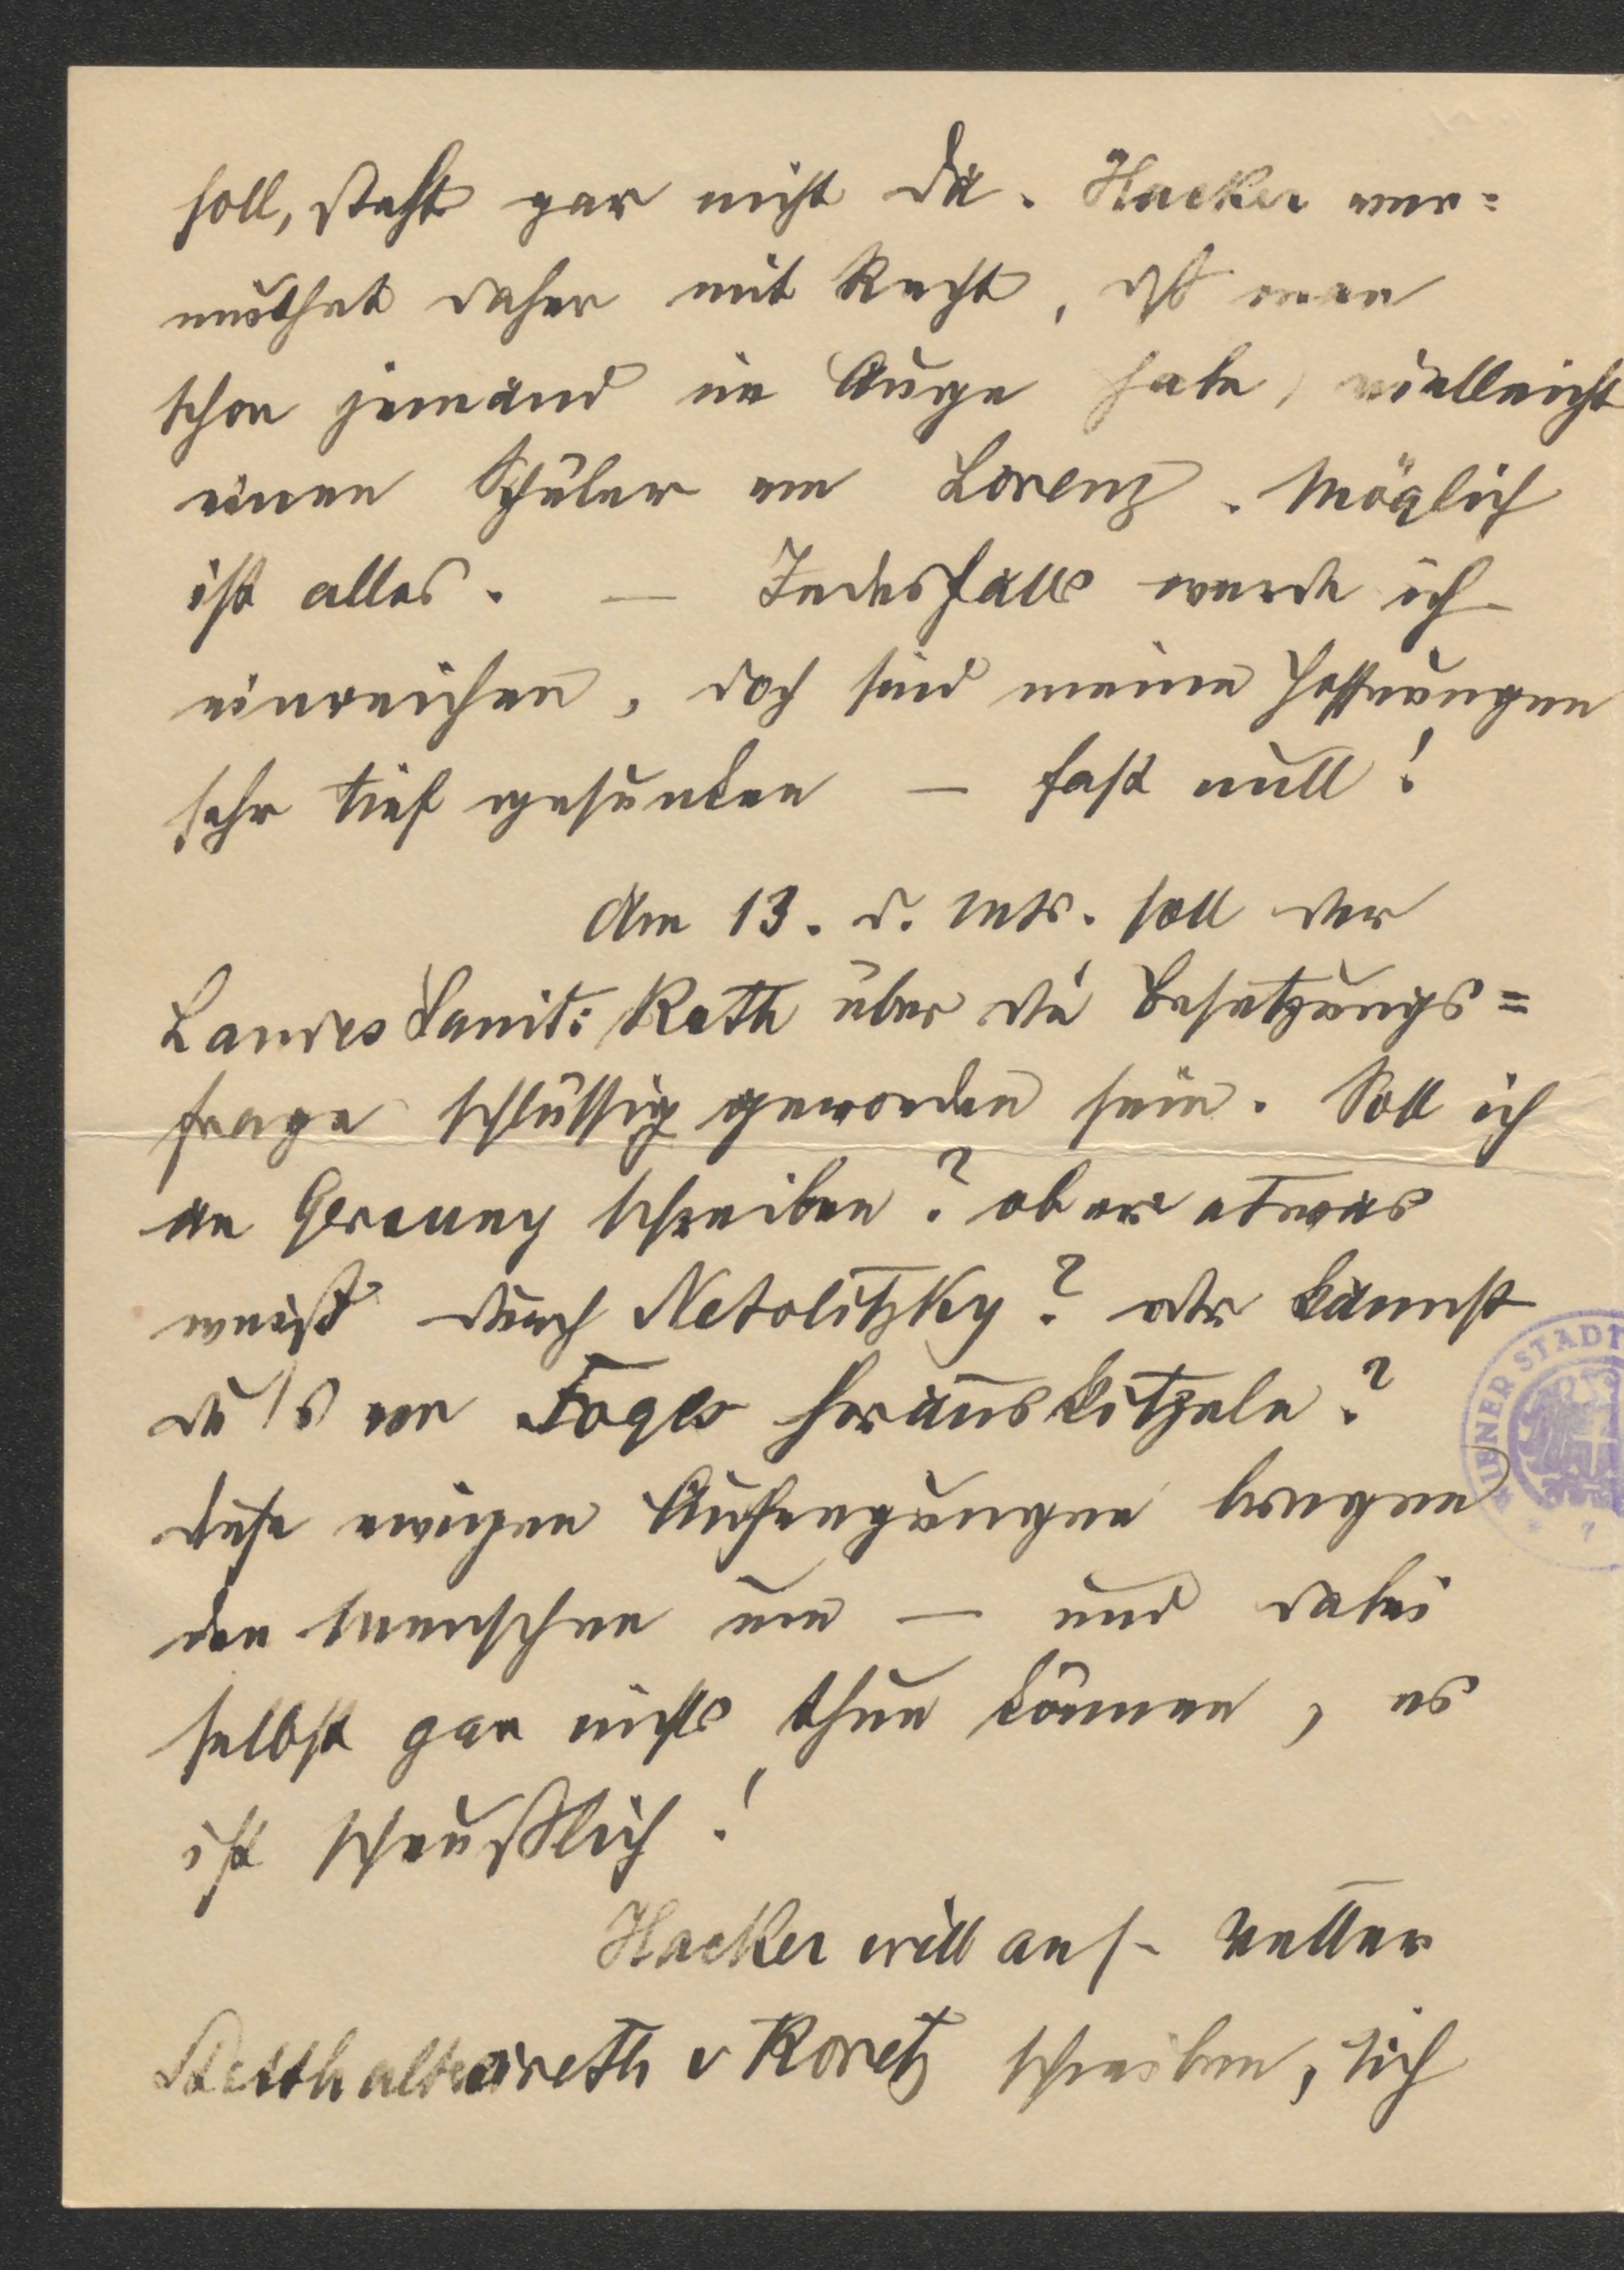 soll, steht gar nicht da. Hacker ver=
muthet daher mit Recht, dß man
schon jemand im Auge habe, vielleicht
einen Schüler von Lorenz. Möglich
ist alles. — Jedesfalls werde ich
einreichen, doch sind meine Hoffnungen
sehr tief gesunken — fast null!
Am 13. d. Mts. soll der
Landes Sanit: Rath über die Besetzungs=
frage schlüssig geworden sein. Soll ich
an Gersuny schreiben? ob er etwas
weiß durch Netolitzky? oder kannst
du's von Foges herauskitzeln?
diese ewigen Aufregungen bringen
den Menschen um — und dabei
selbst gar nichts thun können, es
ist scheußlich!
Hacker will an s. Vetter
Statthaltereirath v Koretz schreiben, sich
WIENER STADT